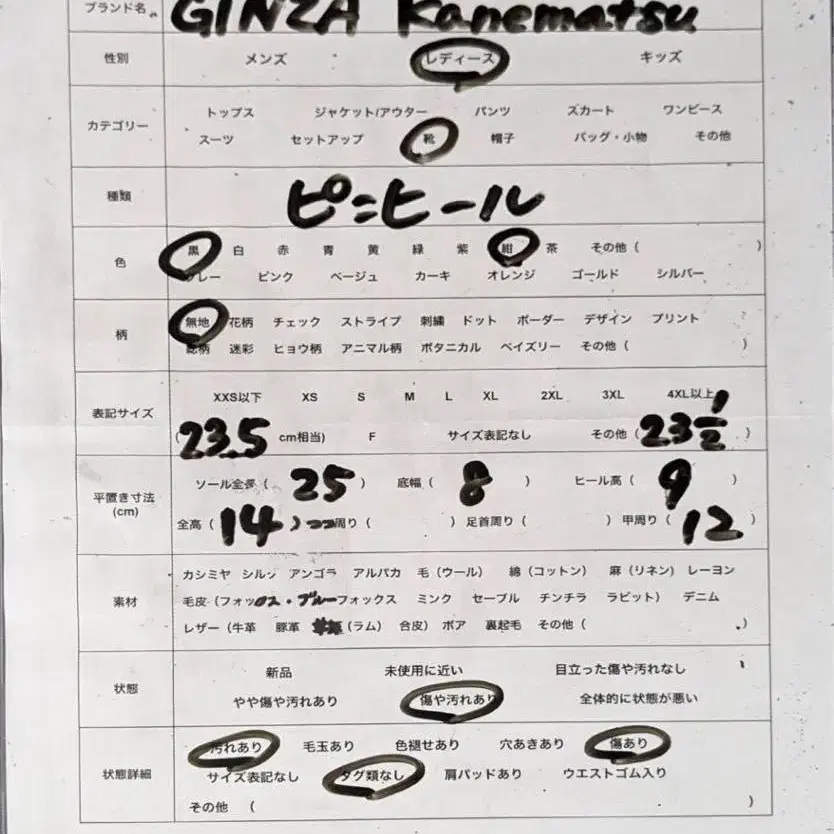 ブランド名 GINZA Kanematsu
性別 メンズ レディース キッズ
カテゴリー
トップス ジャケット/アウター パンツ スカート ワンピース
スーツ セットアップ 靴 帽子 バッグ・小物 その他
種類 ピ=ヒール
色
黒 白 赤 青 黄 緑 紫 紺 茶 その他( )
グレー ピンク ベージュ カーキ オレンジ ゴールド シルバー
柄
無地 花柄 チェック ストライプ 刺繍 ドット ボーダー デザイン プリント
総柄 迷彩 ヒョウ柄 アニマル柄 ボタニカル ペイズリー その他( )
表記サイズ
XXS以下 XS S M L XL 2XL 3XL 4XL以上
(23.5 cm相当) F サイズ表記なし その他(23 1/2)
平置き寸法
(cm)
ソール全長( 25 ) 底幅( 8 ) ヒール高( 9 )
全高( 14 ) 周り( ) 足首周り( ) 甲周り( 12 )
素材
カシミヤ シルク アンゴラ アルパカ 毛(ウール) 綿(コットン) 麻(リネン) レーヨン
毛皮(フォックス・ブルーフォックス ミンク セーブル チンチラ ラビット) デニム
レザー(牛革 豚革 (ラム) 合皮) ボア 裏起毛 その他( )
状態
新品 未使用に近い 目立った傷や汚れなし
やや傷や汚れあり 傷や汚れあり 全体的に状態が悪い
状態詳細
汚れあり 毛玉あり 色褪せあり 穴あきあり 傷あり
サイズ表記なし タグ類なし 肩パッドあり ウエストゴム入り
その他 ( )